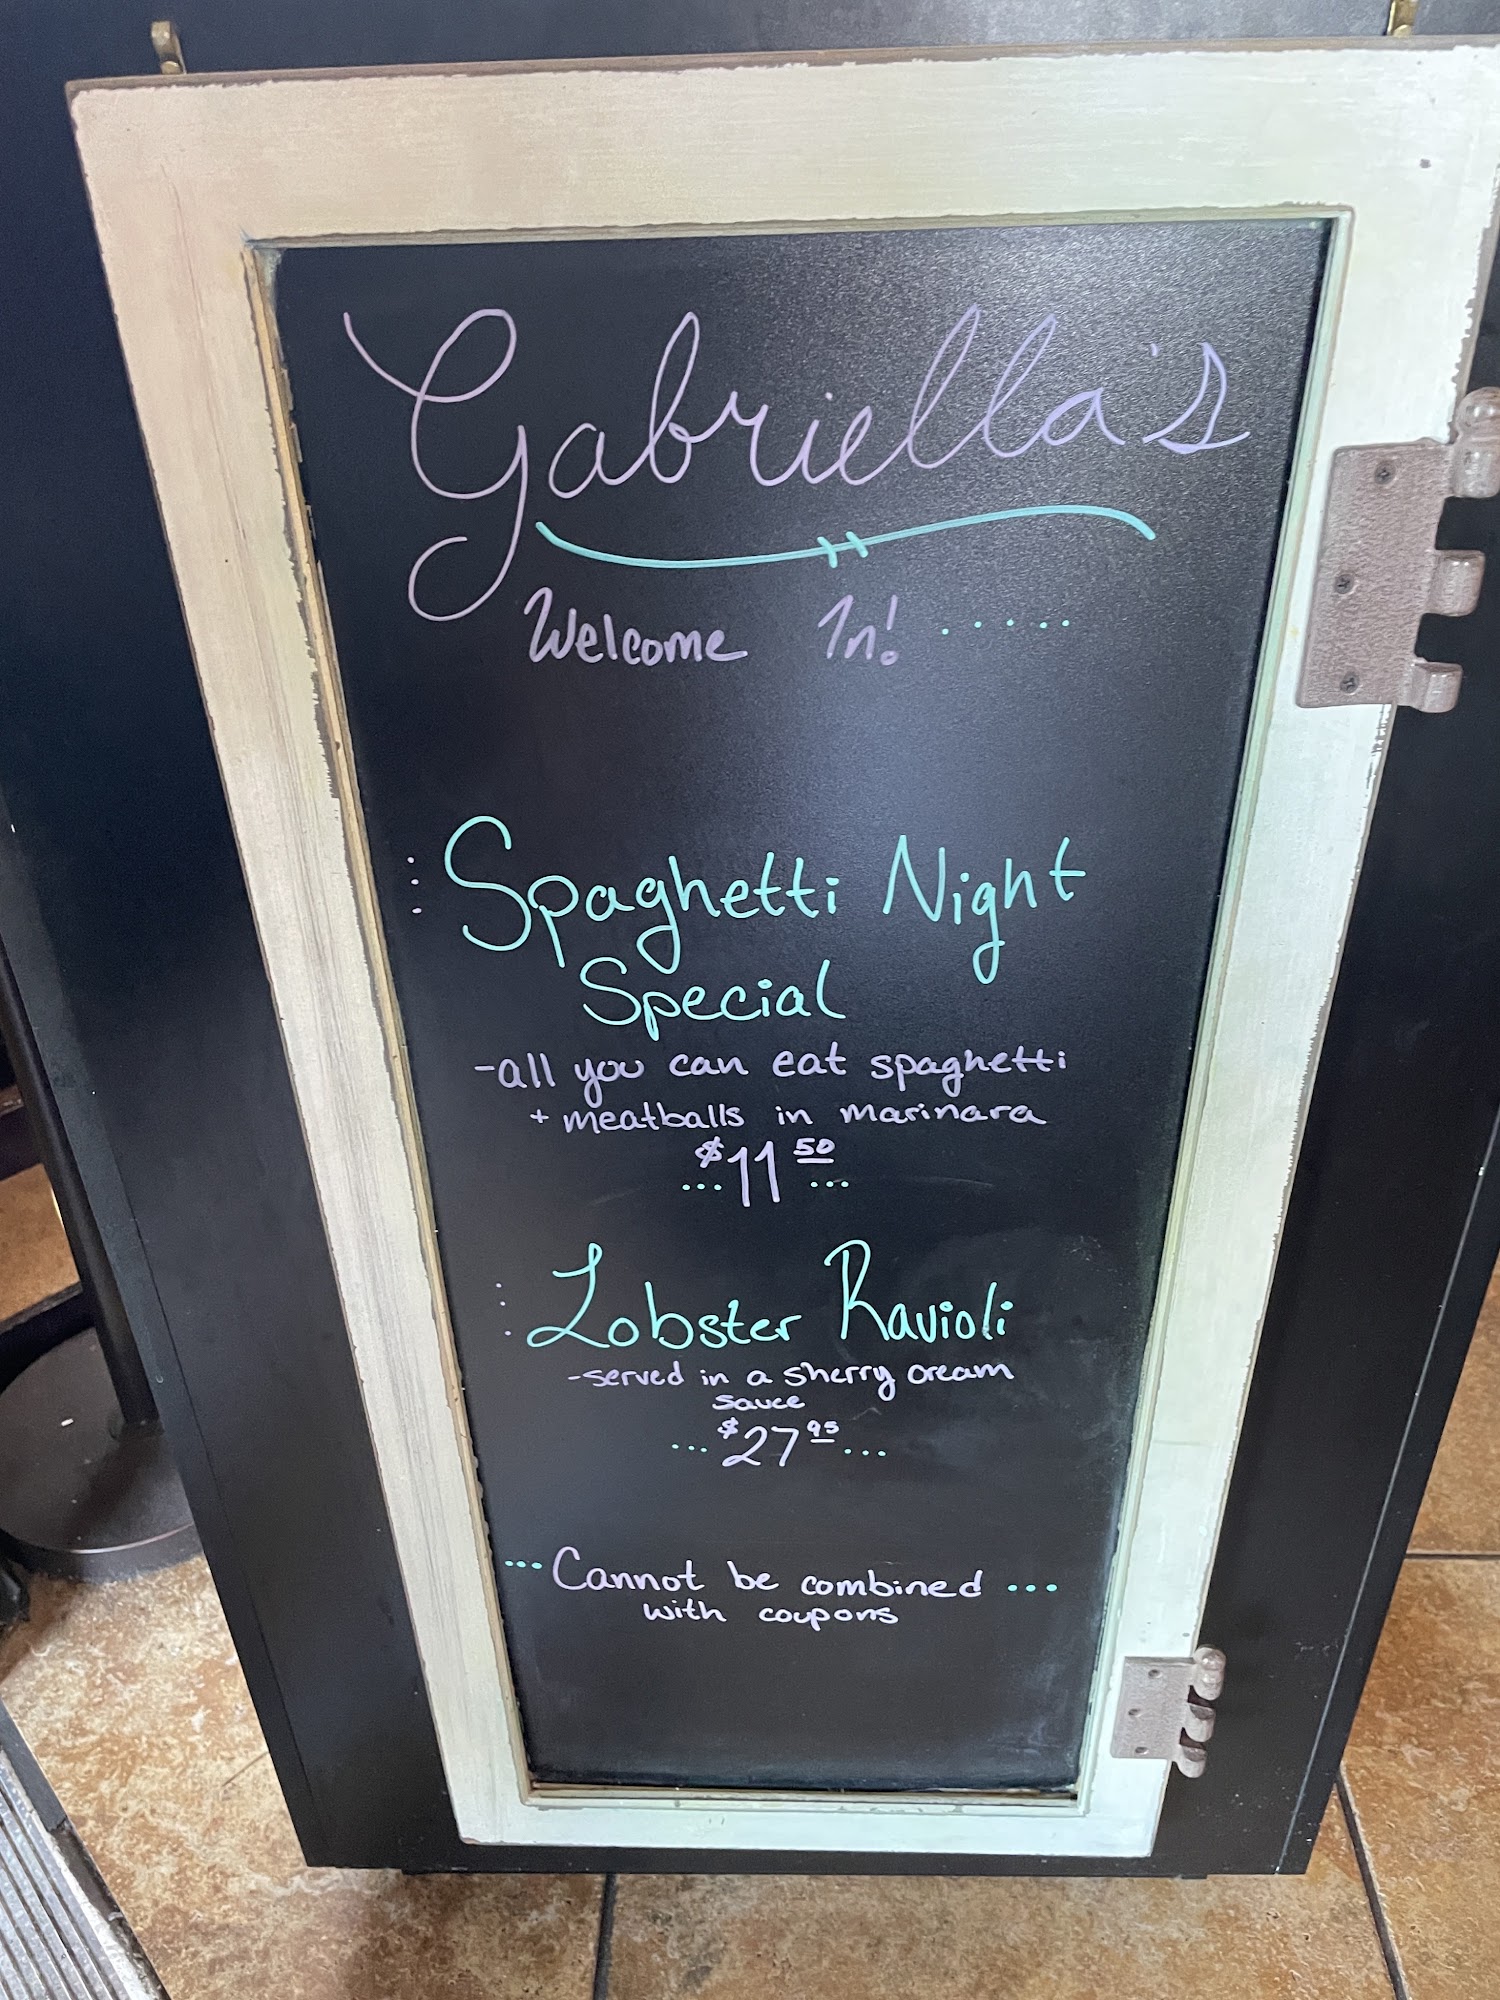 Gabriella's
Welcome In!.....
Spaghetti Night
Special
-all you can eat spaghetti
+ meatballs in marinara
...$11 50...
Lobster Ravioli
-served in a sherry cream
sauce
...$27 95...
...Cannot be combined...
with coupons